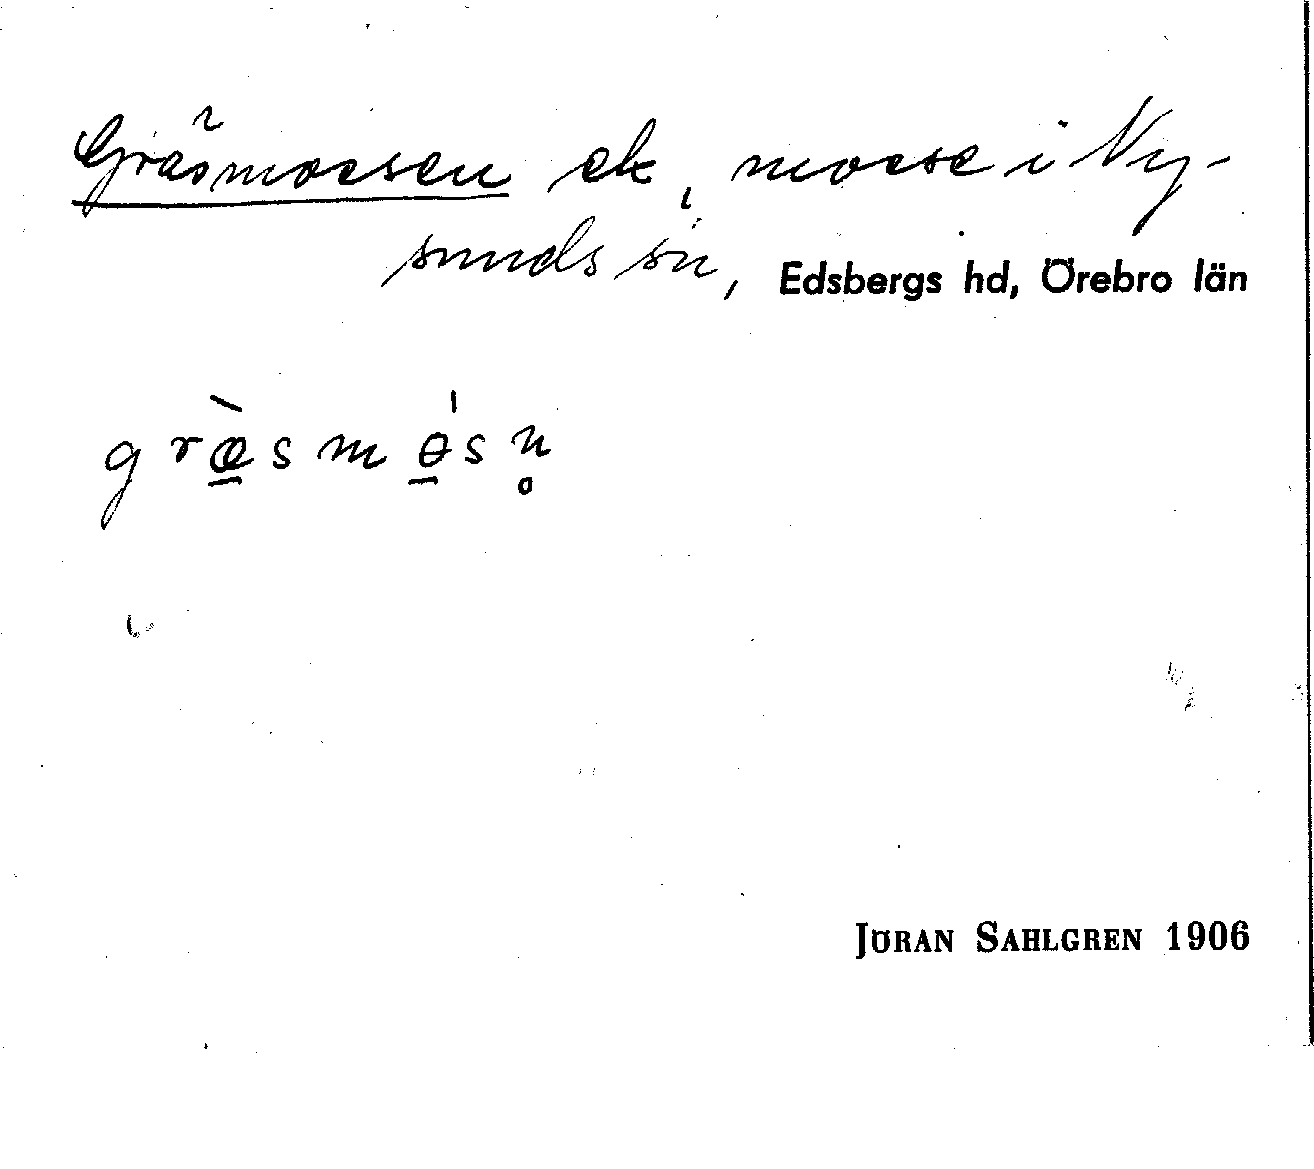 Gräsmossen ek, mosse i Ny-
sunds sn, Edsbergs hd, Örebro län
græ̀smɵ́sn̥
JÖRAN SAHLGREN 1906